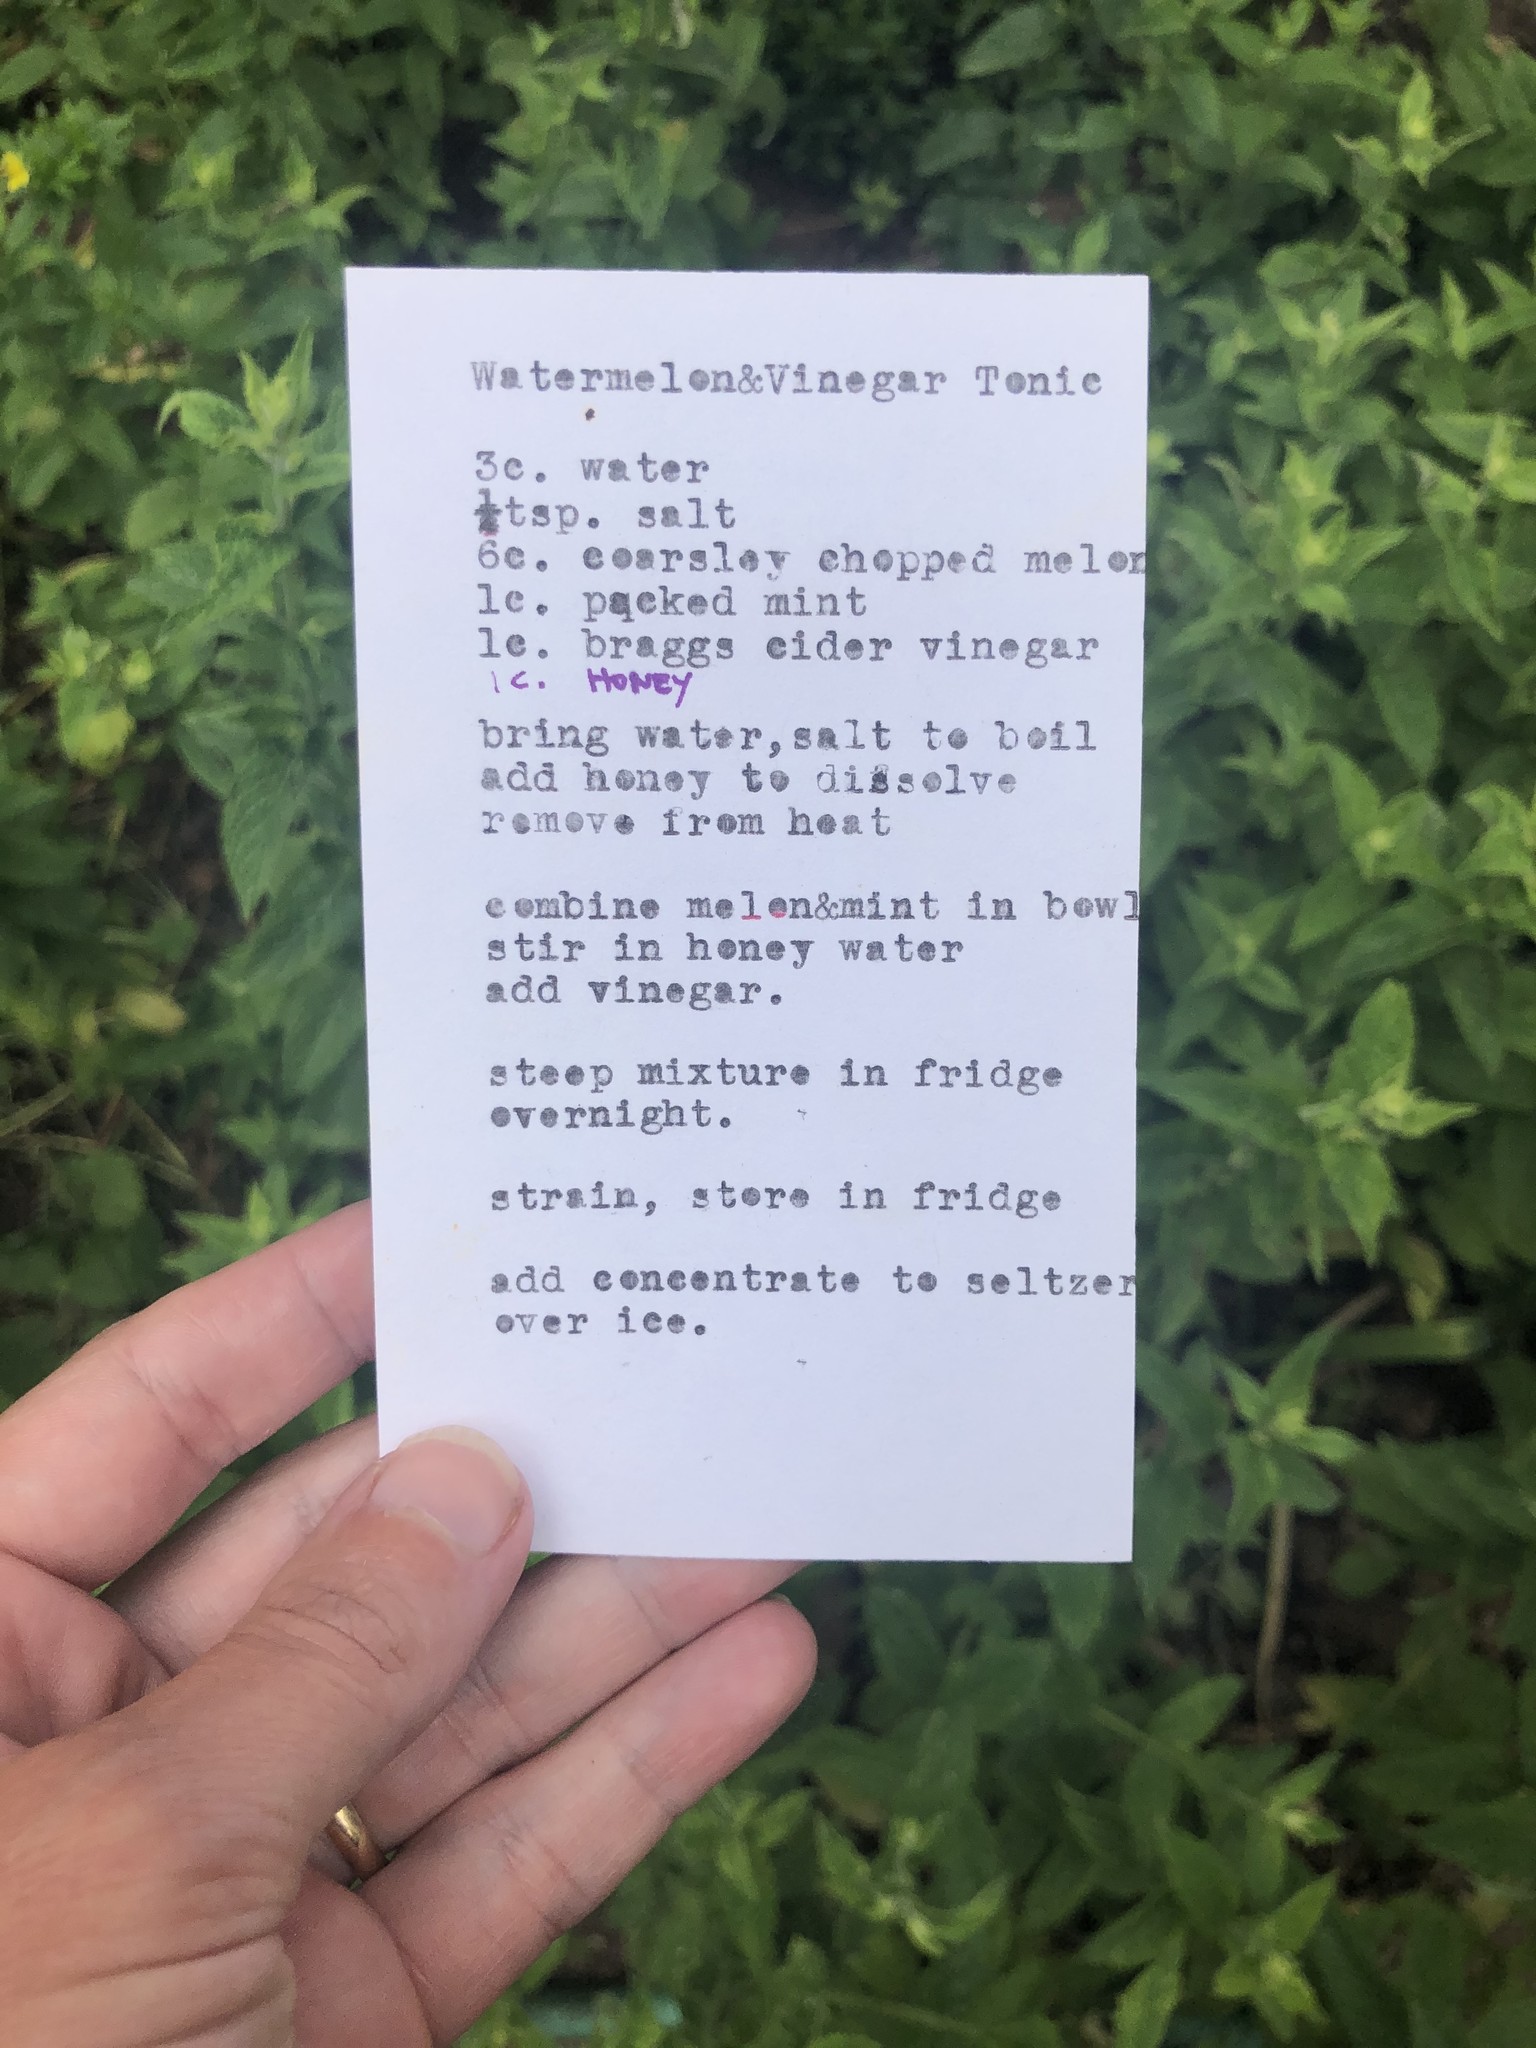 Watermelon&Vinegar Tonic
3c. water
½tsp. salt
6c. coarsley chopped melon
1c. packed mint
1c. braggs cider vinegar
1C. HONEY
bring water,salt to boil
add honey to dissolve
remove from heat
combine melon&mint in bowl
stir in honey water
add vinegar.
steep mixture in fridge
overnight.
strain, store in fridge
add concentrate to seltzer
over ice.